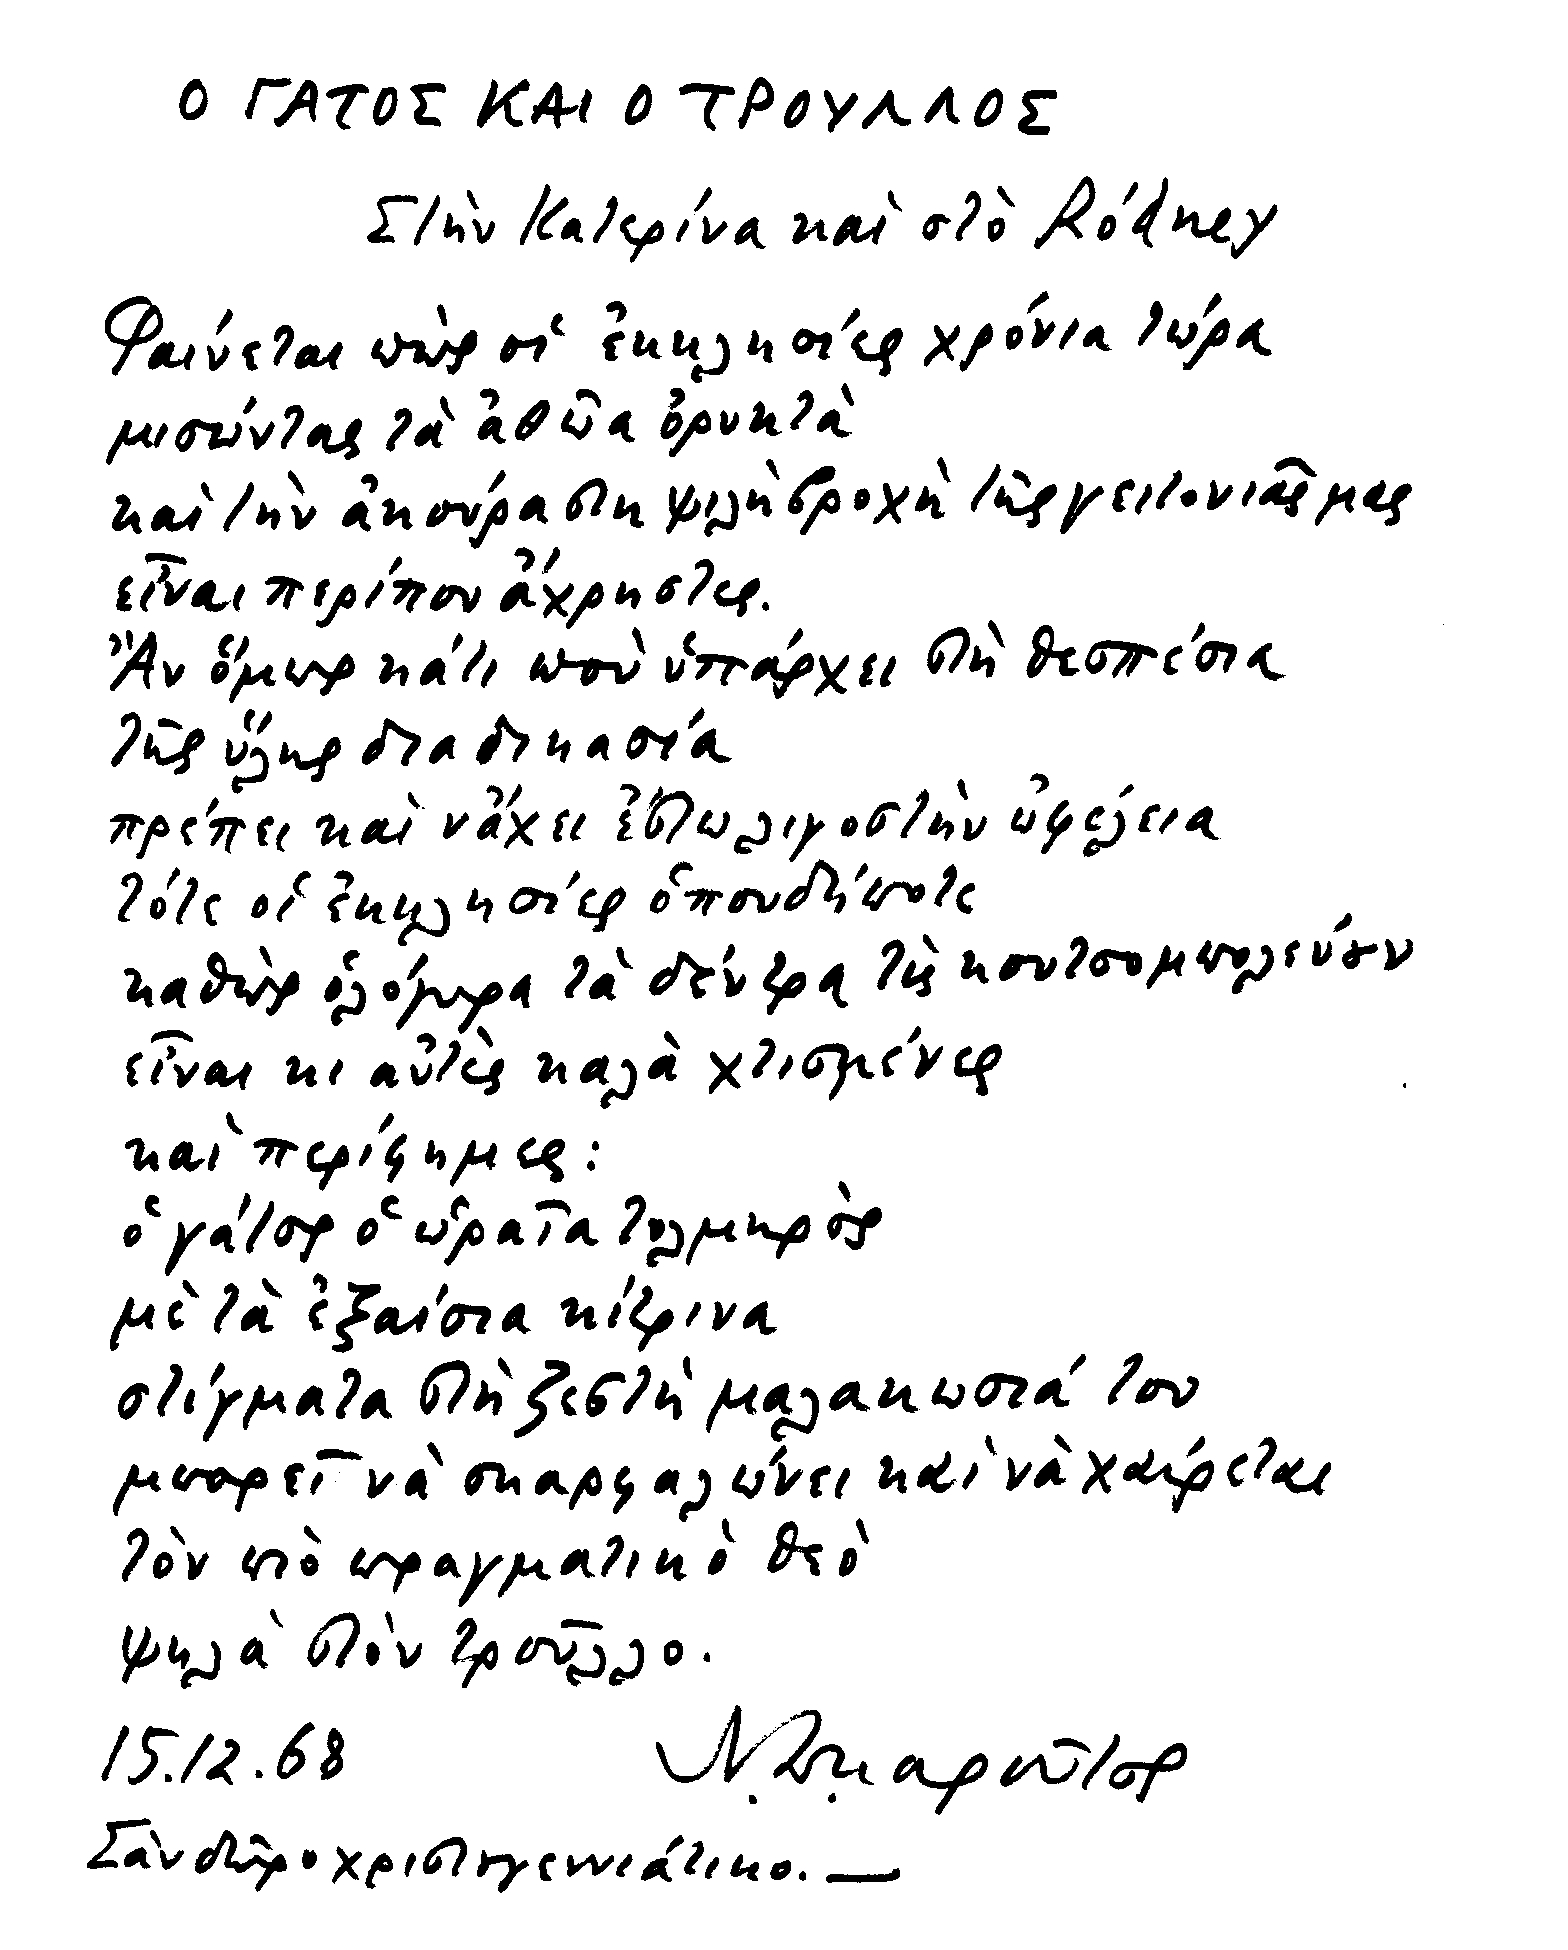 Ο ΓΑΤΟΣ ΚΑΙ Ο ΤΡΟΥΛΛΟΣ
Στὴν Κατερίνα καὶ στὸ Ródney
Φαίνεται πὼς οἱ ἐκκλησίες χρόνια τώρα
μισώντας τὰ ἀθῶα ὀρυκτὰ
καὶ τὴν ἀκούραστη ψιλὴ βροχὴ τῆς γειτονιᾶς μας
εἶναι περίπου ἄχρηστες.
Ἂν ὅμως κάτι ποὺ ὑπάρχει στὴ θεσπέσια
τῆς ὕλης διαδικασία
πρέπει καὶ νἄχει ἔστω λιγοστὴν ὠφέλεια
τότε οἱ ἐκκλησίες ὁπουδήποτε
καθὼς ὁλόγυρα τὰ δέντρα τὶς κουτσομπολεύουν
εἶναι κι αὐτὲς καλὰ χτισμένες
καὶ περίφημες:
ὁ γάτος ὁ ὡραῖα τολμηρὸς
μὲ τὰ ἐξαίσια κίτρινα
στίγματα στὴ ζεστὴ μαλακωσιά του
μπορεῖ νὰ σκαρφαλώνει καὶ νὰ χαίρεται
τὸν πιὸ πραγματικὸ θεὸ
ψηλὰ στὸν τροῦλλο.
15.12.68 Ν.Δ. Καροῦζος
Σὰν δῶρο χριστουγεννιάτικο. —